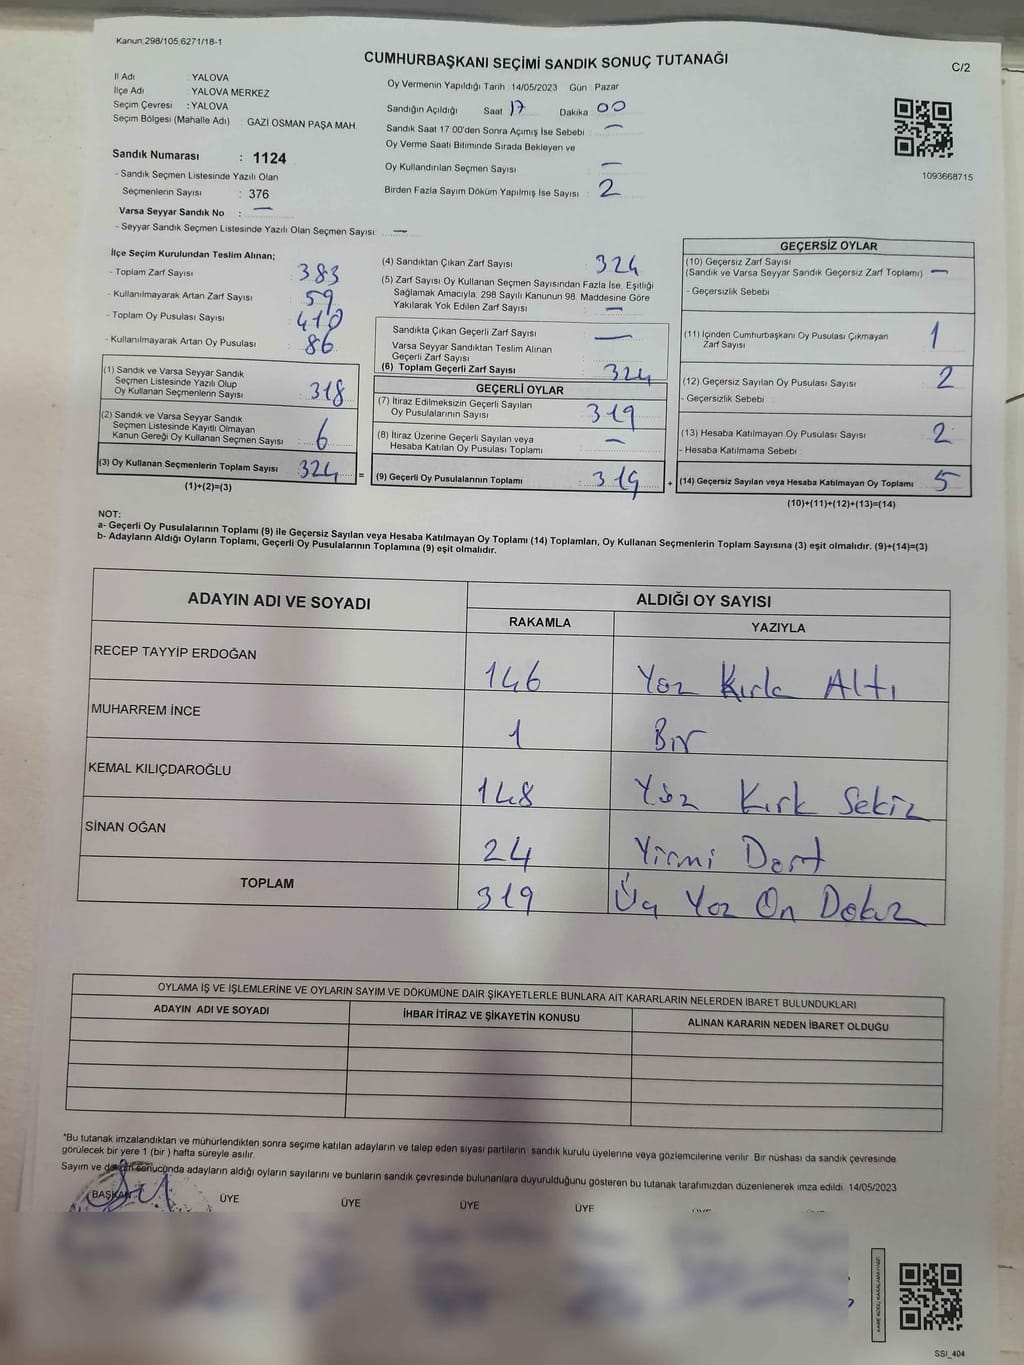 Kanun;298/105;6271/18-1
CUMHURBAŞKANI SEÇİMİ SANDIK SONUÇ TUTANAĞI
C/2
İl Adı : YALOVA
İlçe Adı : YALOVA MERKEZ
Seçim Çevresi : YALOVA
Seçim Bölgesi (Mahalle Adı) : GAZİ OSMAN PAŞA MAH.
Sandık Numarası : 1124
- Sandık Seçmen Listesinde Yazılı Olan
Seçmenlerin Sayısı : 376
Varsa Seyyar Sandık No : —
- Seyyar Sandık Seçmen Listesinde Yazılı Olan Seçmen Sayısı: —
Oy Vermenin Yapıldığı Tarih : 14/05/2023 Gün : Pazar
Sandığın Açıldığı Saat 17 Dakika 00
Sandık Saat 17:00'den Sonra Açımış İse Sebebi : —
Oy Verme Saati Bitiminde Sırada Bekleyen ve
Oy Kullandırılan Seçmen Sayısı : —
Birden Fazla Sayım Döküm Yapılmış İse Sayısı : 2
1093668715
İlçe Seçim Kurulundan Teslim Alınan;
- Toplam Zarf Sayısı : 383
- Kullanılmayarak Artan Zarf Sayısı : 59
- Toplam Oy Pusulası Sayısı : 410
- Kullanılmayarak Artan Oy Pusulası : 86
(1) Sandık ve Varsa Seyyar Sandık
Seçmen Listesinde Yazılı Olup
Oy Kullanan Seçmenlerin Sayısı : 318
(2) Sandık ve Varsa Seyyar Sandık
Seçmen Listesinde Kayıtlı Olmayan
Kanun Gereği Oy Kullanan Seçmen Sayısı : 6
(3) Oy Kullanan Seçmenlerin Toplam Sayısı : 324
(1)+(2)=(3)
(4) Sandıktan Çıkan Zarf Sayısı : 324
(5) Zarf Sayısı Oy Kullanan Seçmen Sayısından Fazla İse, Eşitliği
Sağlamak Amacıyla, 298 Sayılı Kanunun 98. Maddesine Göre
Yakılarak Yok Edilen Zarf Sayısı : —
Sandıkta Çıkan Geçerli Zarf Sayısı : —
Varsa Seyyar Sandıktan Teslim Alınan
Geçerli Zarf Sayısı :
(6) Toplam Geçerli Zarf Sayısı : 324
GEÇERLİ OYLAR
(7) İtiraz Edilmeksizin Geçerli Sayılan
Oy Pusulalarının Sayısı : 319
(8) İtiraz Üzerine Geçerli Sayılan veya
Hesaba Katılan Oy Pusulaları Toplamı : —
= (9) Geçerli Oy Pusulalarının Toplamı : 319
GEÇERSİZ OYLAR
(10) Geçersiz Zarf Sayısı
(Sandık ve Varsa Seyyar Sandık Geçersiz Zarf Toplamı) : —
- Geçersizlik Sebebi :
(11) İçinden Cumhurbaşkanı Oy Pusulası Çıkmayan
Zarf Sayısı : 1
(12) Geçersiz Sayılan Oy Pusulası Sayısı : 2
- Geçersizlik Sebebi :
(13) Hesaba Katılmayan Oy Pusulası Sayısı : 2
- Hesaba Katılmama Sebebi :
+ (14) Geçersiz Sayılan veya Hesaba Katılmayan Oy Toplamı : 5
(10)+(11)+(12)+(13)=(14)
NOT:
a- Geçerli Oy Pusulalarının Toplamı (9) ile Geçersiz Sayılan veya Hesaba Katılmayan Oy Toplamı (14) Toplamları, Oy Kullanan Seçmenlerin Toplam Sayısına (3) eşit olmalıdır. (9)+(14)=(3)
b- Adayların Aldığı Oyların Toplamı, Geçerli Oy Pusulalarının Toplamına (9) eşit olmalıdır.
ADAYIN ADI VE SOYADI
ALDIĞI OY SAYISI
RAKAMLA YAZIYLA
RECEP TAYYİP ERDOĞAN 146 Yüz Kırk Altı
MUHARREM İNCE 1 Bir
KEMAL KILIÇDAROĞLU 148 Yüz Kırk Sekiz
SİNAN OĞAN 24 Yirmi Dört
TOPLAM 319 Üç Yüz On Dokuz
OYLAMA İŞ VE İŞLEMLERİNE VE OYLARIN SAYIM VE DÖKÜMÜNE DAİR ŞİKAYETLERLE BUNLARA AİT KARARLARIN NELERDEN İBARET BULUNDUKLARI
ADAYIN ADI VE SOYADI İHBAR İTİRAZ VE ŞİKAYETİN KONUSU ALINAN KARARIN NEDEN İBARET OLDUĞU
*Bu tutanak imzalandıktan ve mühürlendikten sonra seçime katılan adayların ve talep eden siyasi partilerin sandık kurulu üyelerine veya gözlemcilerine verilir. Bir nüshası da sandık çevresinde
görülecek bir yere 1 (bir) hafta süreyle asılır.
Sayım ve döküm sonucunda adayların aldığı oyların sayılarını ve bunların sandık çevresinde bulunanlara duyurulduğunu gösteren bu tutanak tarafımızdan düzenlenerek imza edildi. 14/05/2023
BAŞKAN ÜYE ÜYE ÜYE ÜYE
SSI_404